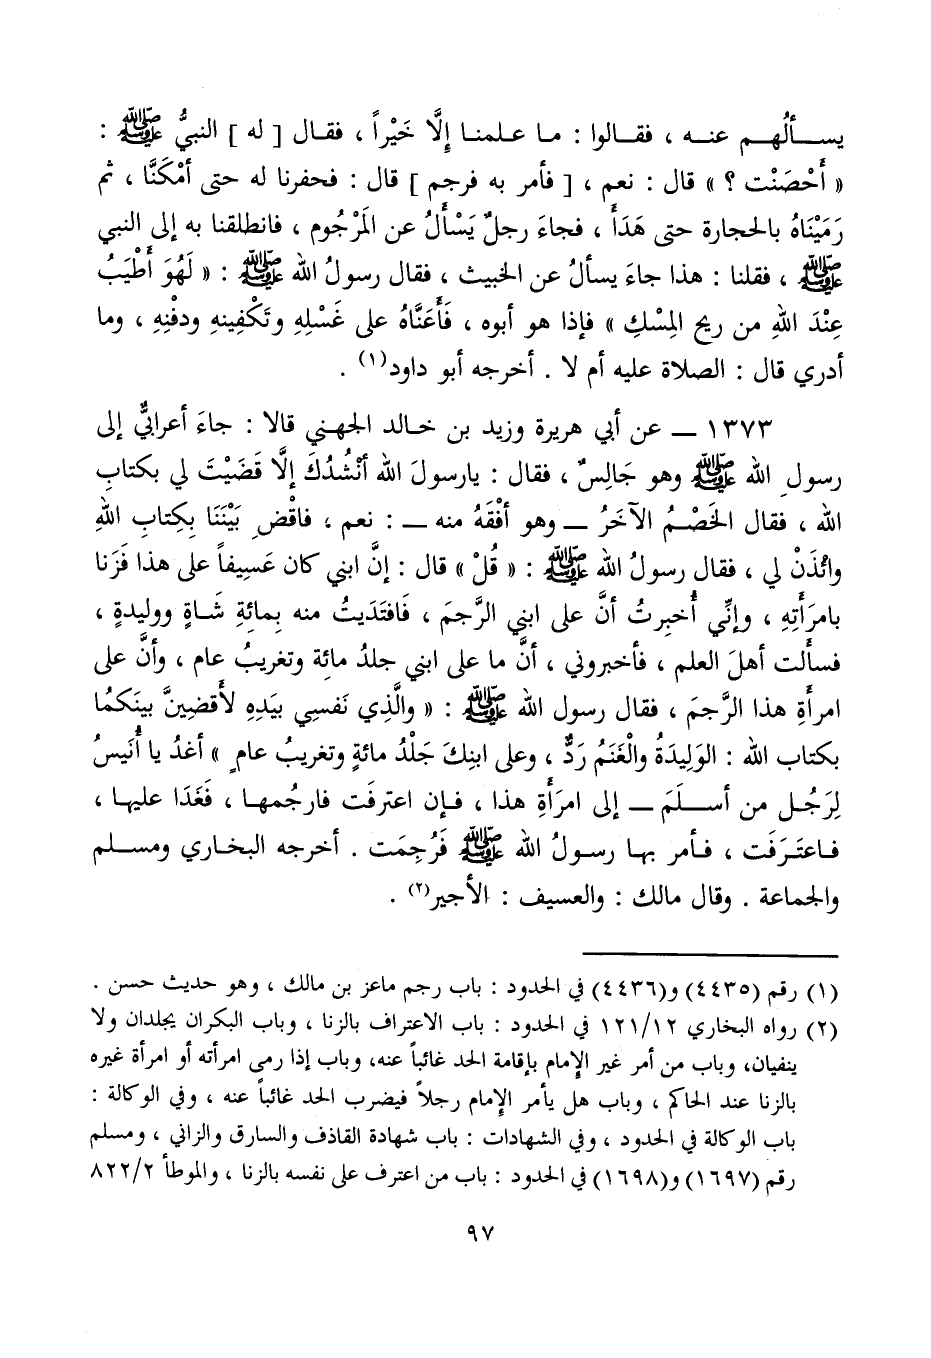 يســألُهــم عنــه ، فقــالوا : مـا علمنـا إِلَّا خَيْراً ، فقـال [ له ] النبيُّ ﷺ :
« أَحْصَنْت ؟ » قال : نعم ، [ فأمر به فرجم ] قال : فحفرنا له حتى أمْكَنَّا ، ثم
رَمَيْنَاهُ بالحجارة حتى هَدَأَ ، فجاءَ رجلٌ يَسْأَلُ عن المَرْجُوم ، فانطلقنا به إلى النبي
ﷺ ، فقلنا : هذا جاءَ يسألُ عن الخبيث ، فقال رسولُ الله ﷺ : « لَهُوَ أَطْيَبُ
عِنْدَ اللهِ من ريح المِسْكِ » فإذا هو أبوه ، فَأَعَنَّاهُ على غَسْلِهِ وتَكْفِينهِ ودفْنِهِ ، وما
أدري قال : الصلاة عليه أم لا . أخرجه أبو داود(١) .
١٣٧٣ ــ عن أبي هريرة وزيد بن خالد الجهني قالا : جاءَ أعرابيٌّ إلى
رسولِ الله ﷺ وهو جَالِسٌ ، فقال : يارسولَ الله أنْشُدُكَ إلَّا قَضَيْتَ لي بكتابِ
الله ، فقال الخَصْمُ الآخَرُ ــ وهو أفْقَهُ منه ــ : نعم ، فاقْضِ بَيْنَنَا بِكِتابِ اللهِ
وائْذَنْ لي ، فقال رسولُ الله ﷺ : « قُلْ » قال : إنَّ ابني كان عَسِيفاً على هذا فَزَنا
بامرَأَتِهِ ، وإنِّي أُخبِرتُ أنَّ على ابني الرَّجمَ ، فَافتَدَيتُ منه بِمائةِ شَاةٍ ووليدةٍ ،
فسألت أهلَ العلم ، فأخبروني ، أنَّ ما على ابني جلدُ مائة وتغريبُ عام ، وأنَّ على
امرأةِ هذا الرَّجمَ ، فقال رسول الله ﷺ : « والَّذِي نَفسِي بيَدِهِ لأقضِينَّ بينَكمُا
بكتاب الله : الوَلِيدَةُ والْغَنَمُ رَدٌّ ، وعلى ابنِكَ جَلْدُ مائةٍ وتغريبُ عامٍ » أغدُ يا أُنَيسُ
لِرَجُـل من أســلَمَ ــ إلى امرَأَةِ هذا ، فـإن اعترفت فارجُمهـا ، فَغَدَا عليهـا ،
فـاعتـرَفَت ، فـأمر بهـا رسـولُ الله ﷺ فَرُجِمَت . أخرجه البخـاري ومسـلم
والجماعة . وقال مالك : والعسيف : الأجير(٢) .
(١) رقم (٤٤٣٥) و(٤٤٣٦) في الحدود : باب رجم ماعز بن مالك ، وهو حديث حسن .
(٢) رواه البخاري ١٢١/١٢ في الحدود : باب الاعتراف بالزنا ، وباب البكران يجلدان ولا
ينفيان، وباب من أمر غير الإمام بإقامة الحد غائباً عنه، وباب إذا رمى امرأته أو امرأة غيره
بالزنا عند الحاكم ، وباب هل يأمر الإمام رجلاً فيضرب الحد غائباً عنه ، وفي الوكالة :
باب الوكالة في الحدود ، وفي الشهادات : باب شهادة القاذف والسارق والزاني ، ومسلم
رقم (١٦٩٧) و(١٦٩٨) في الحدود : باب من اعترف على نفسه بالزنا ، والموطأ ٨٢٢/٢
٩٧